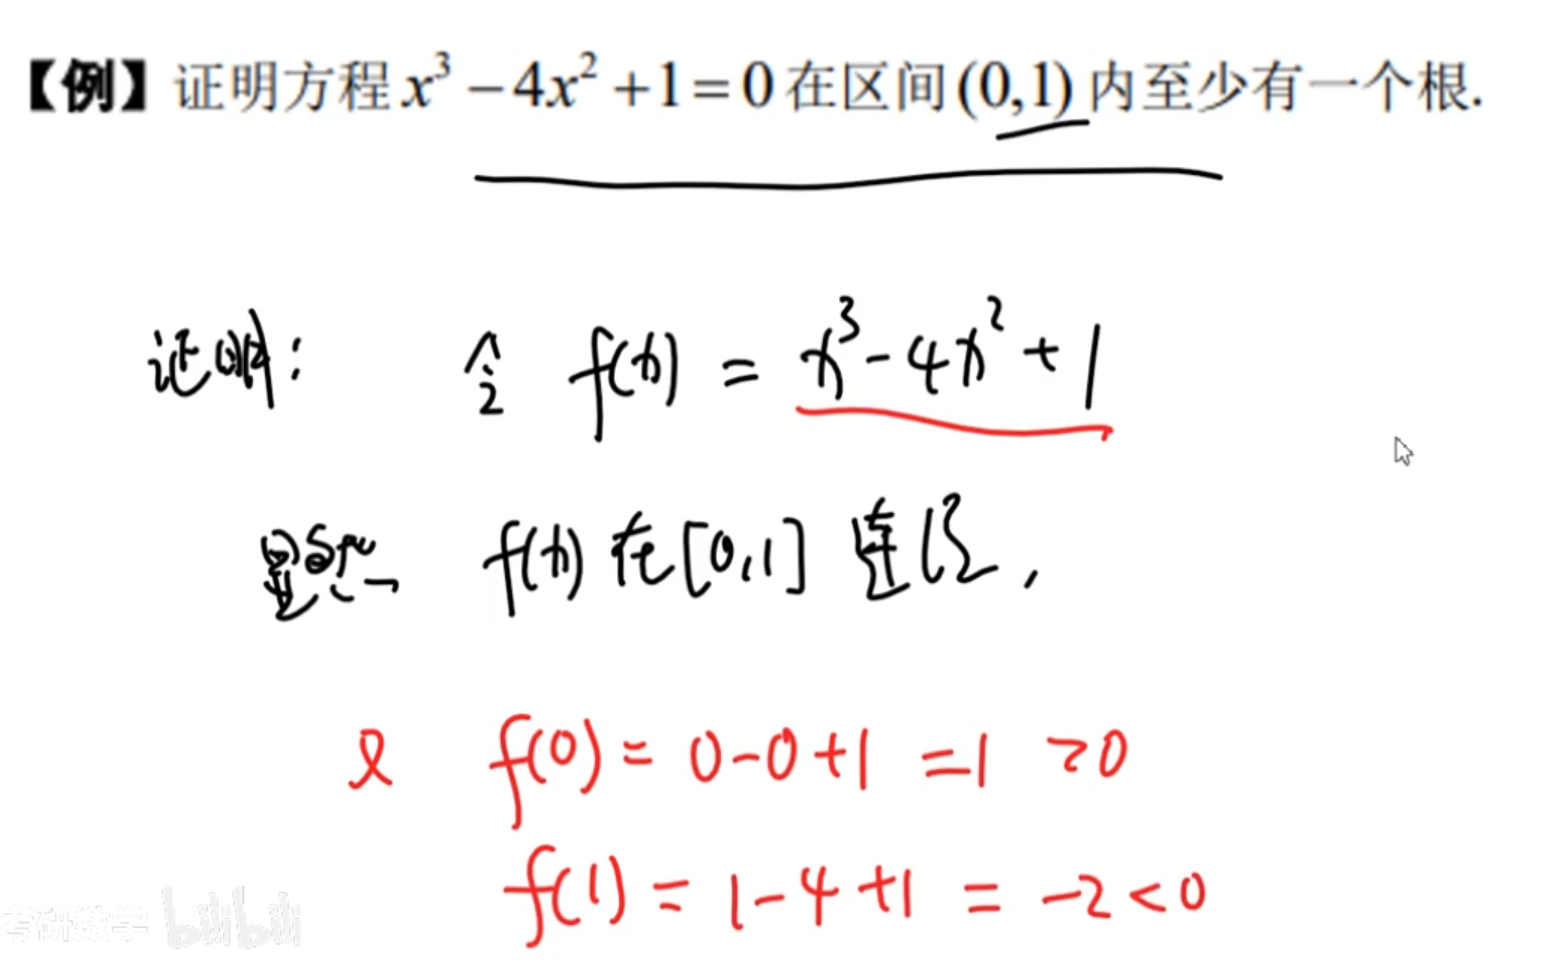 【例】证明方程 x³ − 4x² + 1 = 0 在区间 (0,1) 内至少有一个根.
证明: 令 f(x) = x³ - 4x² + 1
显然 f(x) 在 [0,1] 连续,
又 f(0) = 0-0+1 =1 >0
f(1) = 1-4+1 = -2 < 0
考研数学 bilibili